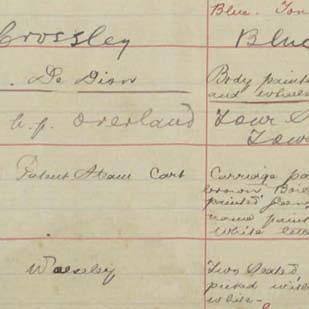 Blue. Ton
Crossley Blue
De Dion Body painte
and wheels
h.p. Overland Four S
Tow
Patent Steam Cart Carriage pa
brown Boil
painted
name paint
White lette
Wolseley Two Seated
picked with
white